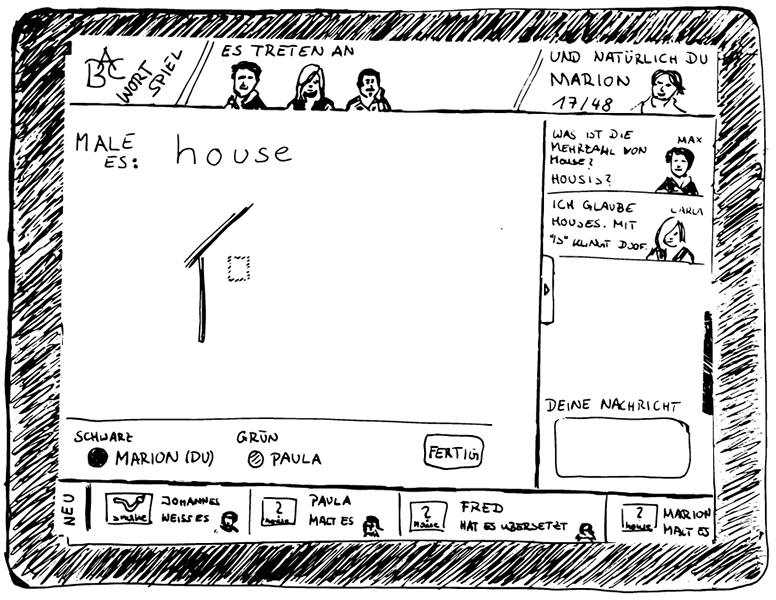 ABC
WORT
SPIEL
ES TRETEN AN
UND NATÜRLICH DU
MARION
17/48
MALE
ES:
house
WAS IST DIE
MEHRZAHL VON
HOUSE?
HOUSIS?
MAX
ICH GLAUBE
HOUSES. MIT
"IS" KLINGT DOOF.
CARLA
DEINE NACHRICHT
SCHWARZ
MARION (DU)
GRÜN
PAULA
FERTIG
NEU
snake
JOHANNES
WEISS ES
?
house
PAULA
MALT ES
?
house
FRED
HAT ES ÜBERSETZT
?
house
MARION
MALT ES